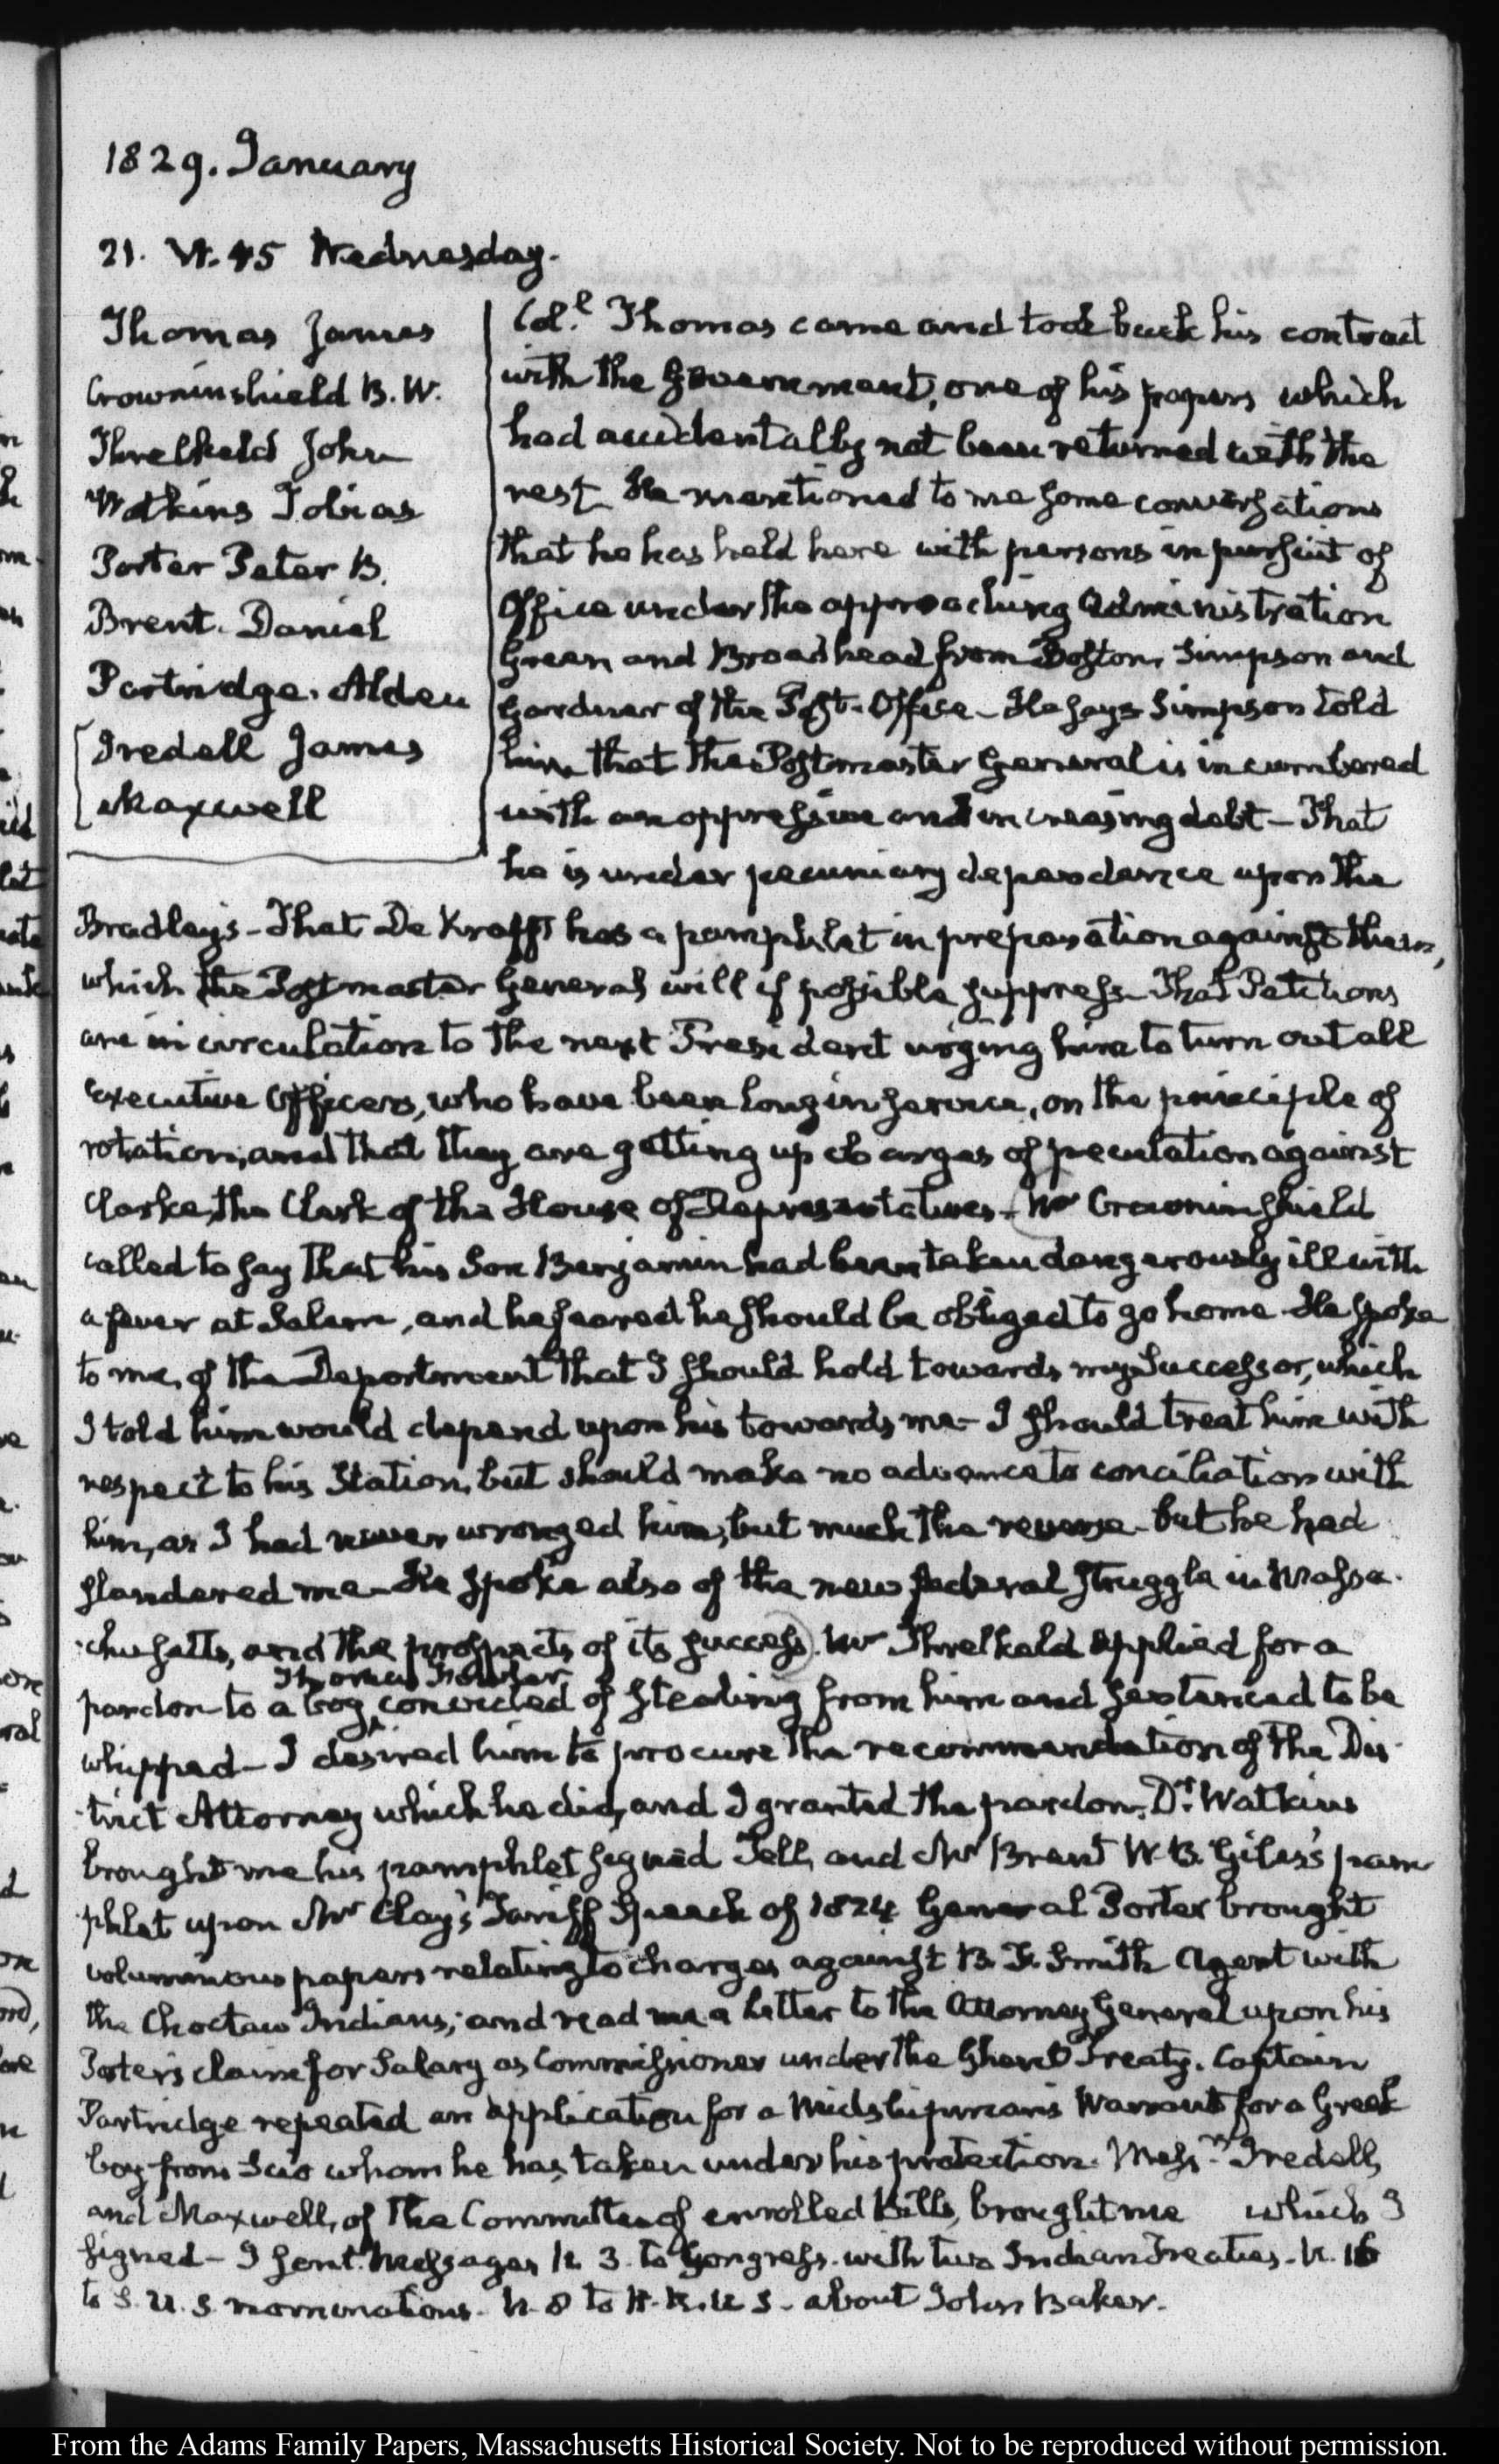 1829. January
21. VI. 45 Wednesday.
Thomas James
Crowninshield B. W.
Threlkeld John
Watkins Tobias
Porter Peter B.
Brent. Daniel
Partridge. Alden
Iredell James
Maxwell
Col.l Thomas came and took back his contract
with the Government, one of his papers which
had accidentally not been returned with the
rest. He mentioned to me some conversations
that he has held here with persons in pursuit of
Office under the approaching Administration
Green and Broadhead from Boston, Simpson and
Gardner of the Post-Office - He says Simpson told
him that the Postmaster General is incumbered
with an oppressive and increasing debt - That
he is under pecuniary dependance upon the
Bradley's - That De Krafft has a pamphlet in preparation against them,
which the Postmaster General will if possible suppress - That Petitions
are in circulation to the next President urging him to turn out all
executive Officers, who have been long in service, on the principle of
rotation; and that they are getting up charges of peculation against
Clarke, the Clerk of the House of Representatives - Mr Crowninshield
called to say that his Son Benjamin had been taken dangerously ill with
a fever at Salem, and he feared he should be obliged to go home - He spoke
to me, of the Deportment that I should hold towards my Successor, which
I told him would depend upon his towards me - I should treat him with
respect to his Station, but should make no advance to conciliation with
him, as I had never wronged him; but much the reverse - but he had
slandered me - He spoke also of the new federal struggle in Massa-
-chusetts, and the prospects of its success. Mr Threlkeld applied for a
Thomas
pardon to a boy convicted of stealing from him and sentenced to be
whipped - I desired him to procure the recommendation of the Dis-
-trict Attorney which he did, and I granted the pardon. Dr. Watkins
brought me his pamphlet signed Tell, and Mr Brent W. B. Giles's pam-
phlet upon Mr Clay's Tariff Speech of 1824 General Porter brought
voluminous papers relating to charges against B. F. Smith Agent with
the Choctaw Indians; and read me a letter to the Attorney General upon his
Porter's claim for Salary as Commissioner under the Ghent Treaty. Captain
Partridge repeated an application for a Midshipman's Warrant for a Greek
boy from Scio whom he has taken under his protection. Messrs Iredell,
and Maxwell, of the Committee of enrolled Bills, brought me which I
signed - I sent Messages N. 3. to Congress. with two Indian Treaties. N. 16
to S. U. S. nominations. N. 8 to H. R. U S. about John Baker.
From the Adams Family Papers, Massachusetts Historical Society. Not to be reproduced without permission.